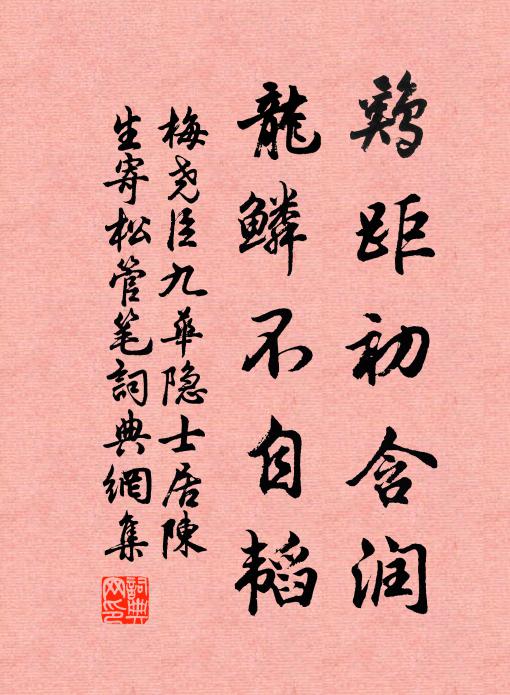 鷄距初含润
龍鳞不自韬
梅尧臣九華隐士居陳
生寄松管笔詞典網集
詞典网印